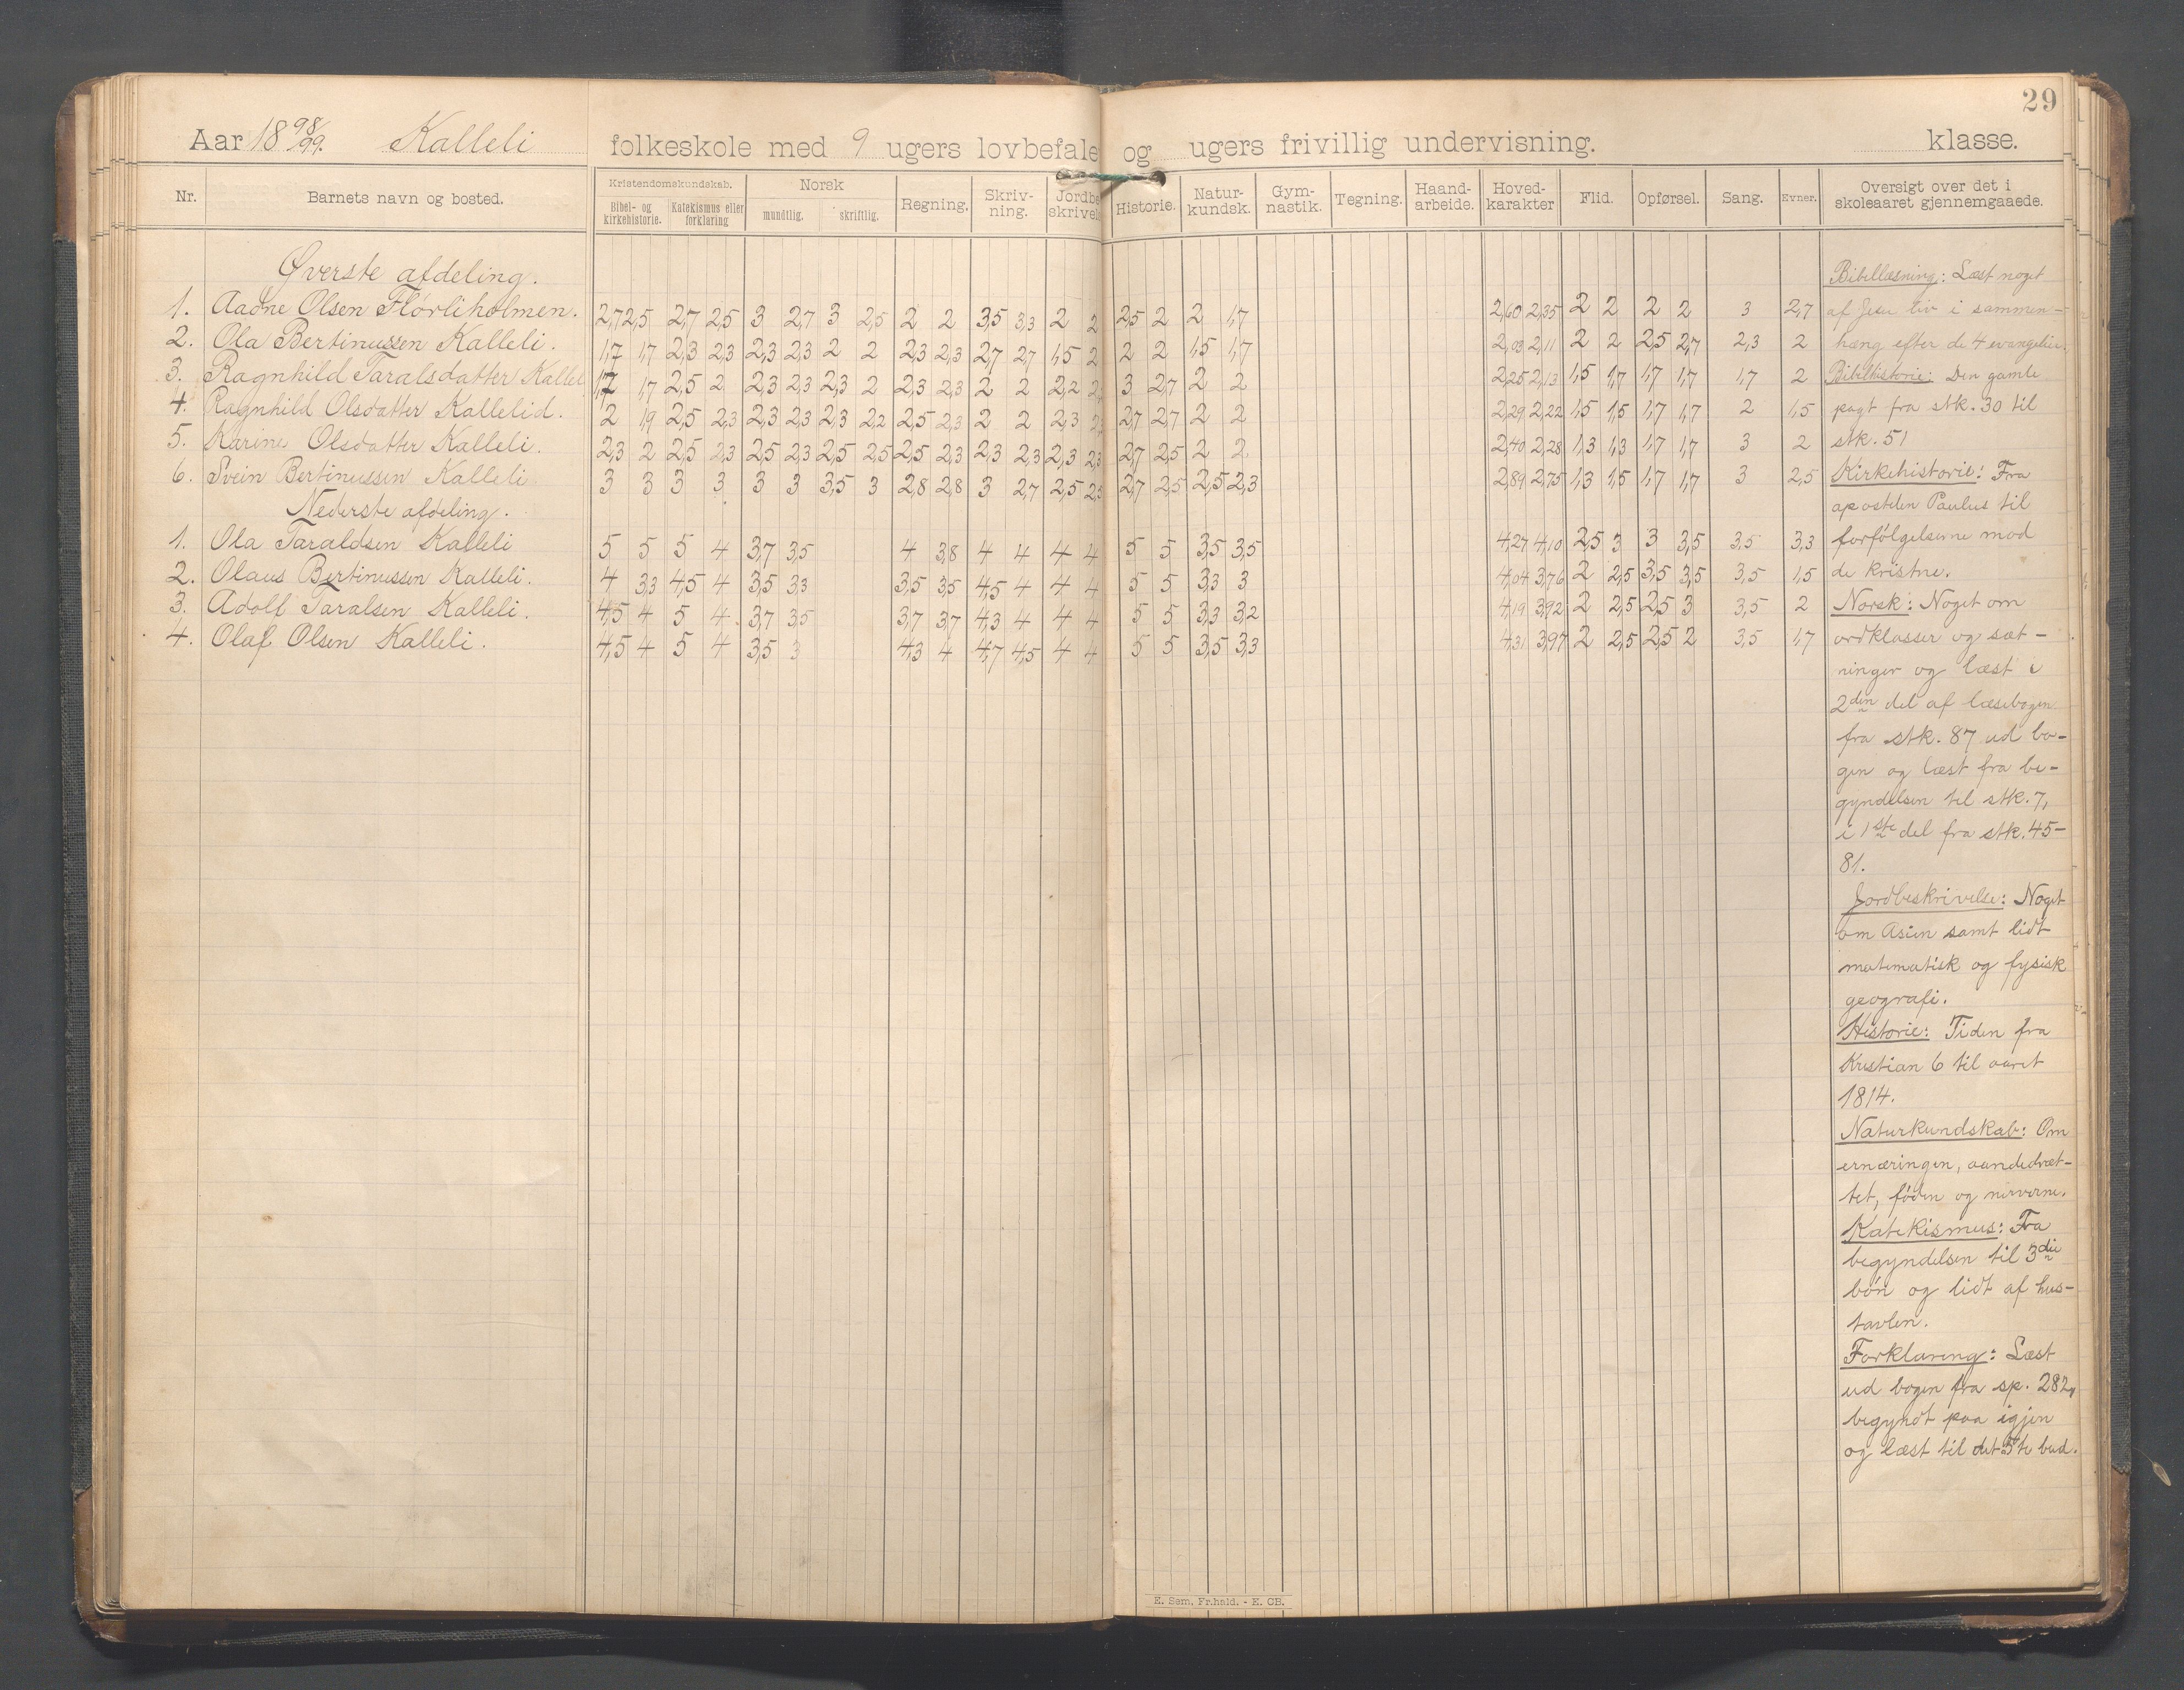 29
Aar 18 98/99. Kalleli folkeskole med 9 ugers lovbefale og ugers frivillig undervisning. klasse.
Nr. Barnets navn og bosted. Kristendomskundskab. Bibel- og kirkehistorie. Katekismus eller forklaring Norsk mundtlig. skriftlig. Regning. Skriv-ning. Jordbe skrivel Historie. Natur-kundsk. Gym-nastik. Tegning. Haand-arbeide. Hoved-karakter Flid. Opførsel. Sang. Evner. Oversigt over det i skoleaaret gjennemgaaede.
Øverste afdeling.
1. Aadne Olsen Flørliholmen. 2,7 2,5 2,7 2,5 3 2,7 3 2,5 2 2 3,5 3,3 2 2 2,5 2 2 1,7 2,60 2,35 2 2 2 2 3 2,7
2. Ola Bertinussen Kalleli. 1,7 1,7 2,3 2,3 2,3 2,3 2 2 2,3 2,3 2,7 2,7 1,5 2 2 2 1,5 1,7 2,03 2,11 2 2 2,5 2,7 2,3 2
3. Ragnhild Taralsdatter Kallel 1,7 1,7 2,5 2 2,3 2,3 2,3 2 2,3 2,3 2 2 2,2 2, 3 2,7 2 2 2,25 2,13 1,5 1,7 1,7 1,7 1,7 2
4. Ragnhild Olsdatter Kallelid. 2 1,9 2,5 2,3 2,3 2,3 2,3 2,2 2,5 2,3 2 2 2,3 2, 2,7 2,7 2 2 2,29 2,22 1,5 1,5 1,7 1,7 2 1,5
5. Karine Olsdatter Kalleli. 2,3 2 2,5 2,3 2,5 2,3 2,5 2,5 2,5 2,3 2,3 2,3 2,3 2,3 2,7 2,5 2 2 2,40 2,28 1,3 1,3 1,7 1,7 3 2
6. Svein Bertinussen Kalleli 3 3 3 3 3 3 3,5 3 2,8 2,8 3 2,7 2,5 2,5 2,7 2,5 2,5 2,3 2,89 2,75 1,3 1,5 1,7 1,7 3 2,5
Nederste afdeling.
1. Ola Taraldsen Kalleli 5 5 5 4 3,7 3,5 4 3,8 4 4 4 4 5 5 3,5 3,5 4,27 4,10 2,5 3 3 3,5 3,5 3,3
2. Olaus Bertinussen Kalleli. 4 3,3 4,5 4 3,5 3,3 3,5 3,5 4,5 4 4 4 5 5 3,3 3 4,04 3,76 2 2,5 3,5 3,5 3,5 1,5
3. Adolf Taralsen Kalleli. 4,5 4 5 4 3,7 3,5 3,7 3,7 4,3 4 4 4 5 5 3,3 3,2 4,19 3,92 2 2,5 2,5 3 3,5 2
4. Olaf Olsen Kalleli. 4,5 4 5 4 3,5 3 4,3 4 4,7 4,5 4 4 5 5 3,5 3,3 4,31 3,97 2 2,5 2,5 2 3,5 1,7
Bibellæsning: Læst noget
af Jesu liv i sammen-
hæng efter de 4 evangelier.
Bibelhistorie: Den gamle
pagt fra stk. 30 til
stk. 51
Kirkehistorie: Fra
apostelen Paulus til
forfølgelserne mod
de kristne.
Norsk: Noget om
ordklasser og sæt-
ninger og læst i
2den del af læsebogen
fra stk. 87 ud bo-
gen og læst fra be-
gyndelsen til stk. 7,
i 1ste del fra stk. 45-
81.
Jordbeskrivelse: Noget
om Asien samt lidt
matematisk og fysisk
geografi.
Historie: Tiden fra
Kristian 6 til aaret
1814.
Naturkundskab: Om
ernæringen, aandedræt-
tet, føden og nerverne.
Katekismus: Fra
begyndelsen til 3die
bøn og lidt af hus-
tavlen.
Forklaring: Læst
ud bogen fra sp. 282,
begyndt paa igjen
og læst til det 5te bud.
E. Sem, Fr.hald. - E. CB.